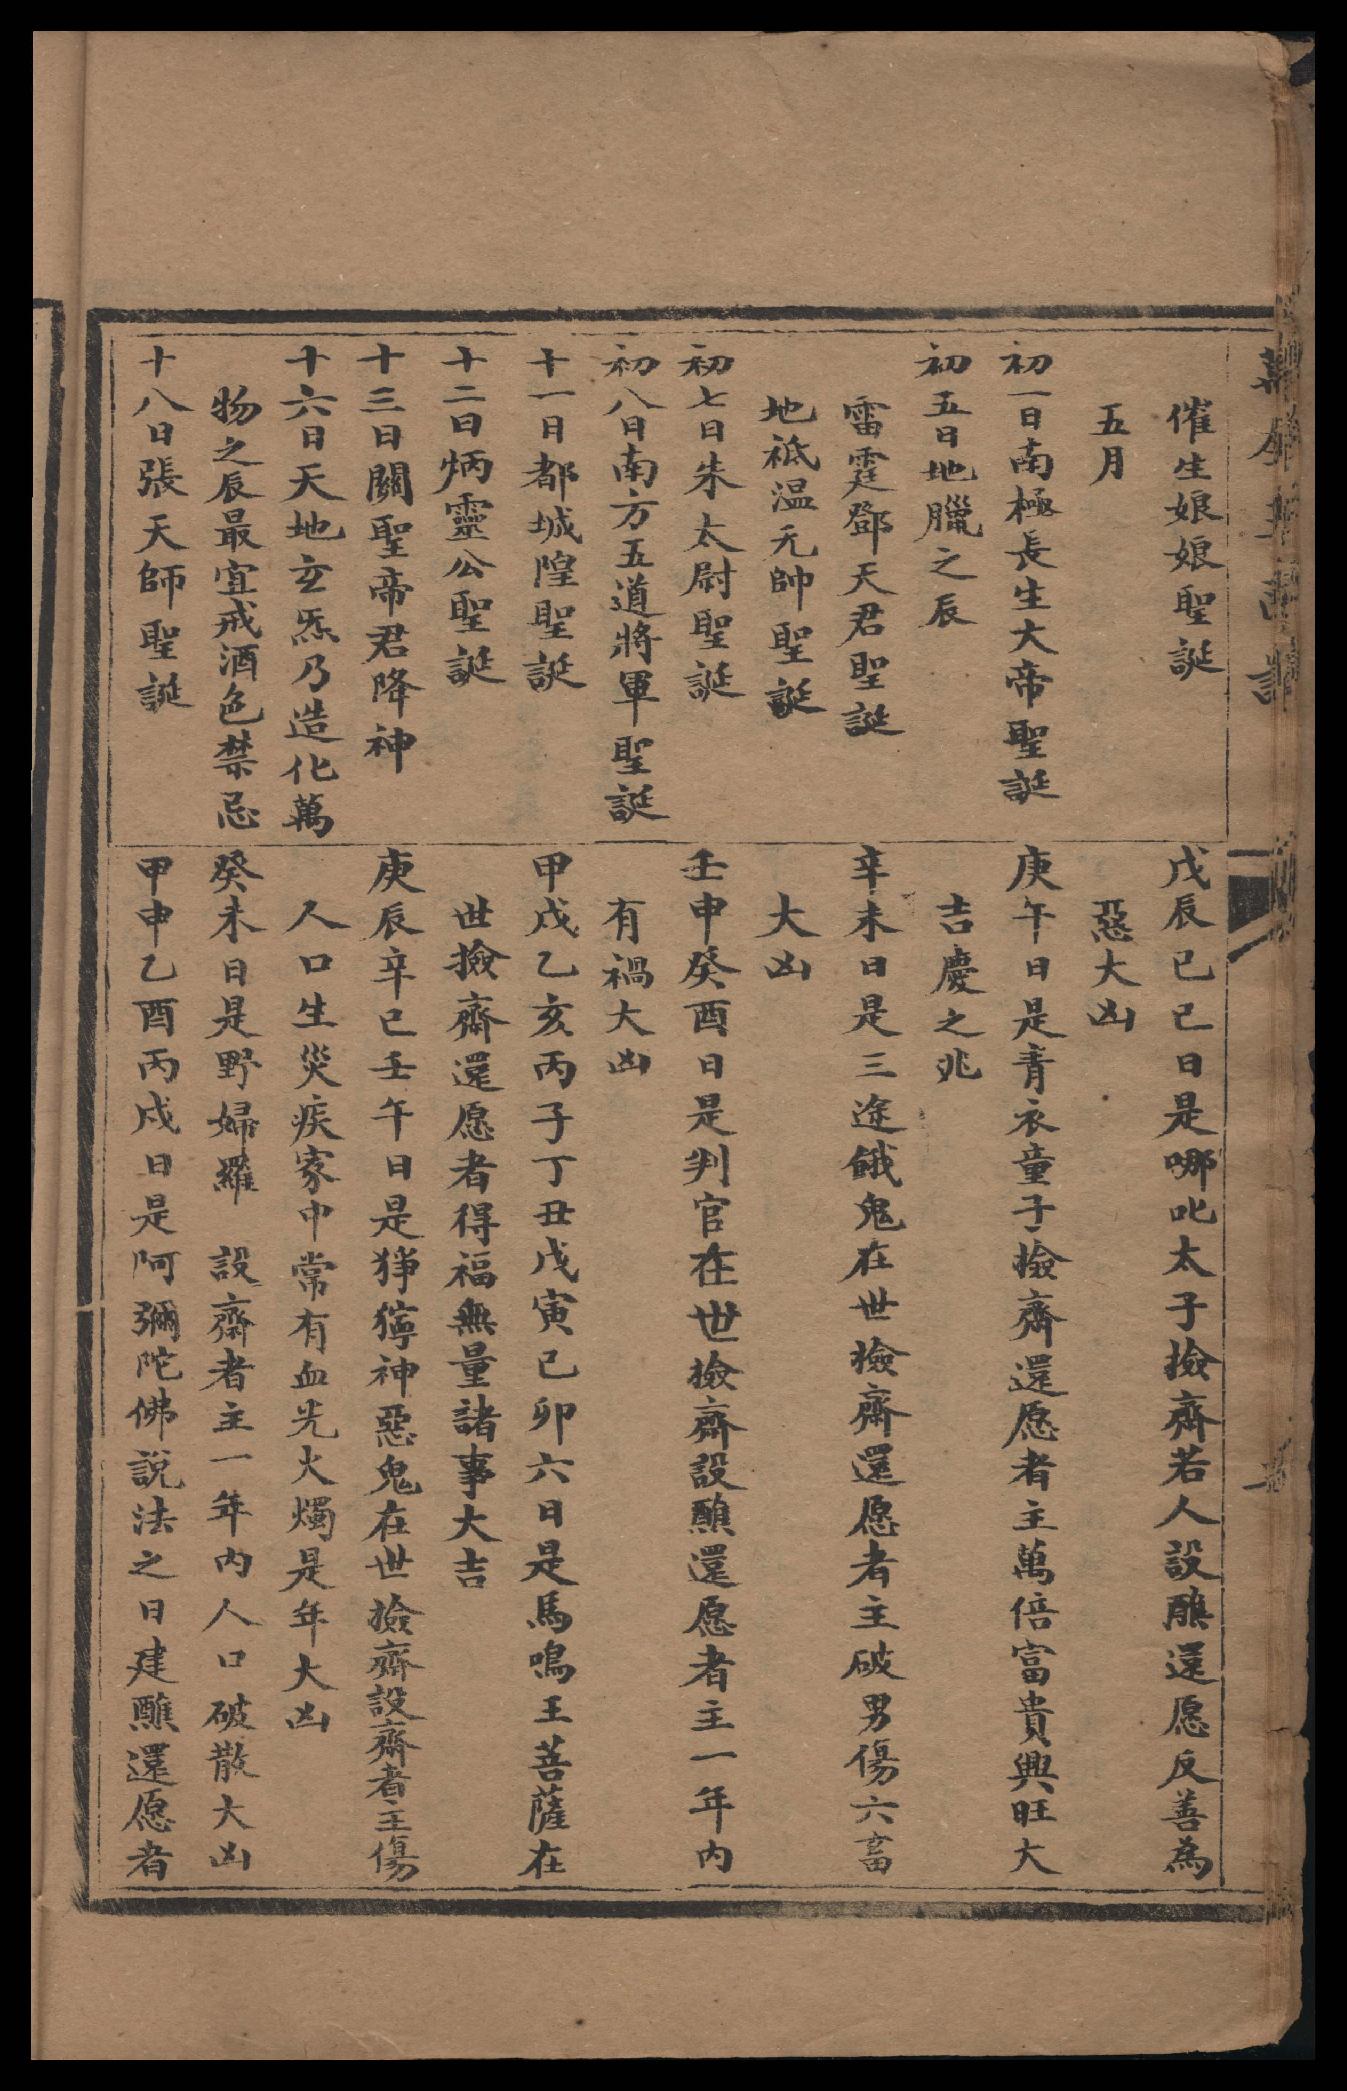 催生娘娘聖誕
五月
初一日南極長生大帝聖誕
初五日地臘之辰
雷霆鄧天君聖誕
地祇温元帥聖誕
初七日朱太尉聖誕
初八日南方五道將軍聖誕
十一日都城隍聖誕
十二日炳靈公聖誕
十三日關聖帝君降神
十六日天地玄炁乃造化萬
物之辰最宜戒酒色禁忌
十八日張天師聖誕
戊辰己巳日是哪叱太子撿齋若人設醮還愿反善為
惡大凶
庚午日是青衣童子撿齋還愿者主萬倍富貴興旺大
吉慶之兆
辛未日是三途餓鬼在世撿齋還愿者主破男傷六畜
大凶
壬申癸酉日是判官在世撿齋設醮還愿者主一年內
有禍大凶
甲戌乙亥丙子丁丑戊寅己卯六日是馬鳴王菩薩在
世撿齋還愿者得福無量諸事大吉
庚辰辛巳壬午日是猙獰神惡鬼在世撿齋設齋者主傷
人口生災疾家中常有血光火燭是年大凶
癸未日是野婦羅 設齋者主一年內人口破散大凶
甲申乙酉丙戌日是阿彌陀佛說法之日建醮還愿者